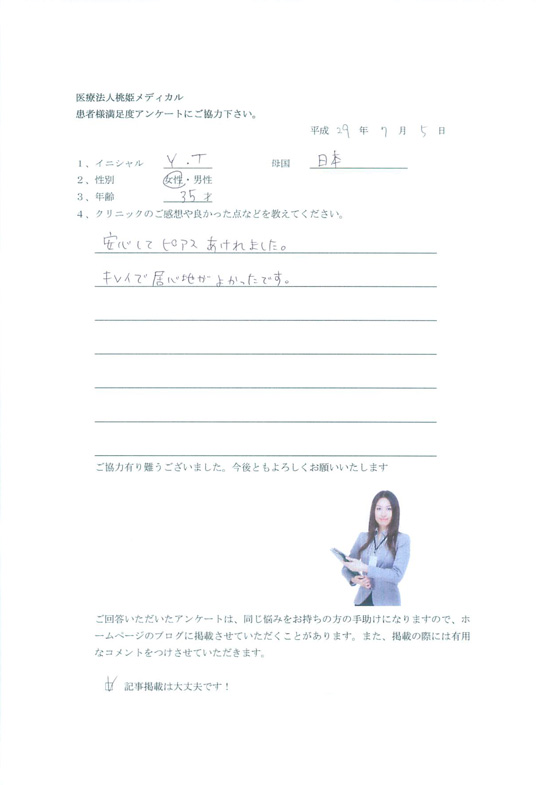 医療法人桃姫メディカル
患者様満足度アンケートにご協力下さい。
平成 29 年 7 月 5 日
1、イニシャル Y.T 母国 日本
2、性別 女性・男性
3、年齢 35才
4、クリニックのご感想や良かった点などを教えてください。
安心して ピアス あけれました。
キレイで居心地がよかったです。
ご協力有り難うございました。今後ともよろしくお願いいたします
ご回答いただいたアンケートは、同じ悩みをお持ちの方の手助けになりますので、ホ
ームページのブログに掲載させていただくことがあります。また、掲載の際には有用
なコメントをつけさせていただきます。
記事掲載は大丈夫です！